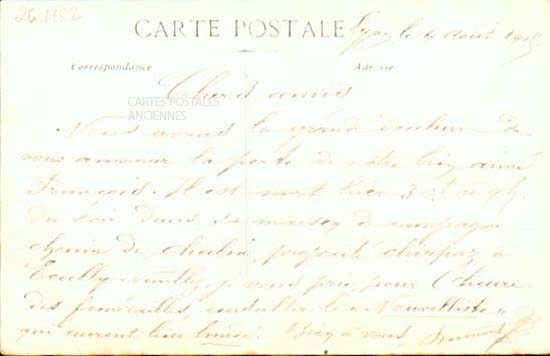 26.1152
CARTE POSTALE
Lyon, le 4 Août 1915
Correspondance Adresse
Chers amis
CARTES POSTALES
ANCIENNES
Nous avons la grande douleur de
vous annoncer la perte de notre bien aimé
François. Il est mort hier 3 à 9h.
du soir dans sa maison de campagne
chemin de propriété à
Ecully, je vous prie, pour l'heure
des funérailles, consulter le « Nouvelliste »
qui auront lieu Bien à vous